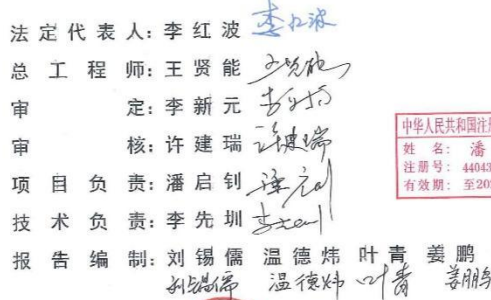 法定代表人：李红波 李红波
总工程师：王贤能 王贤能
审定：李新元
审核：许建瑞 许建瑞
项目负责：潘启钊
技术负责：李先圳
报告编制：刘锡儒 温德炜 叶青 姜鹏
刘锡儒 温德炜 叶青 姜鹏
中华人民共和国注册
姓名：潘
注册号：44043
有效期：至20